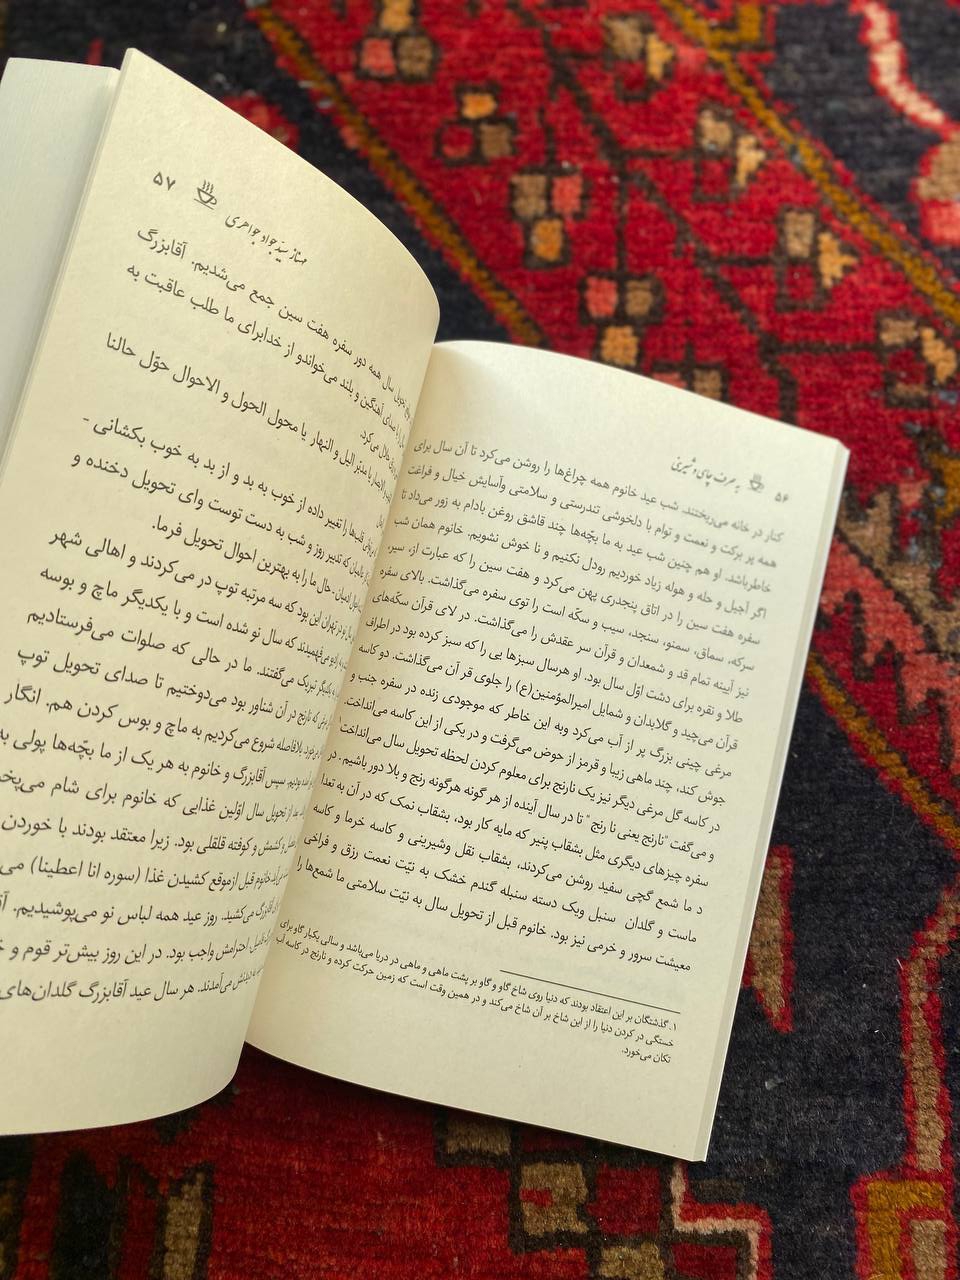 ۵۶
به صرف چای و شیرینی
کنار در خانه می‌ریختند. شب عید خانوم همه چراغ‌ها را روشن می‌کرد تا آن سال برای
همه پر برکت و نعمت و توام با دلخوشی تندرستی و سلامتی وآسایش خیال و فراغت
خاطرباشد. او هم چنین شب عید به ما بچّه‌ها چند قاشق روغن بادام به زور می‌داد تا
اگر آجیل و حله و هوله زیاد خوردیم رودل نکنیم و نا خوش نشویم. خانوم همان شب
سفره هفت سین را در اتاق پنجدری پهن می‌کرد و هفت سین را که عبارت از، سیر،
سرکه، سماق، سمنو، سنجد، سیب و سکّه است را توی سفره می‌گذاشت. بالای سفره
نیز آیینه تمام قد و شمعدان و قرآن سر عقدش را می‌گذاشت. در لای قرآن سکّه‌های
طلا و نقره برای دشت اوّل سال بود. او هرسال سبزها یی را که سبز کرده بود در اطراف
قرآن می‌چید و گلابدان و شمایل امیرالمؤمنین(ع) را جلوی قر آن می‌گذاشت. دو کاسه
مرغی چینی بزرگ پر از آب می‌کرد وبه این خاطر که موجودی زنده در سفره جنب و
جوش کند، چند ماهی زیبا و قرمز از حوض می‌گرفت و در یکی از این کاسه می‌انداخت.
در کاسه گل مرغی دیگر نیز یک نارنج برای معلوم کردن لحظه تحویل سال می‌انداخت۱
و می‌گفت "نارنج یعنی نا رنج" تا در سال آینده از هر گونه هرگونه رنج و بلا دور باشیم. در
سفره چیزهای دیگری مثل بشقاب پنیر که مایه کار بود، بشقاب نمک که در آن به تعدا
د ما شمع گچی سفید روشن می‌کردند، بشقاب نقل وشیرینی و کاسه خرما و کاسه
ماست و گلدان سنبل ویک دسته سنبله گندم خشک به نیّت نعمت رزق و فراخی
معیشت سرور و خرمی نیز بود. خانوم قبل از تحویل سال به نیّت سلامتی ما شمع‌ها را
۱. گذشتگان بر این اعتقاد بودند که دنیا روی شاخ گاو و گاو بر پشت ماهی و ماهی در دریا می‌باشد و سالی یکبار گاو برای
خستگی در کردن دنیا را از این شاخ بر آن شاخ می‌کند و در همین وقت است که زمین حرکت کرده و نارنج در کاسه آب
تکان می‌خورد.
سید جواد جواهری
۵۷
تحویل سال همه دور سفره هفت سین جمع می‌شدیم. آقابزرگ
صدای آهنگین و بلند می‌خواندو از خدابرای ما طلب عاقبت به
می‌کرد.
یا مدبّر الیل و النهار یا محول الحول و الاحوال حوّل حالنا
قلب‌ها را تغییر داده از خوب به بد و از بد به خوب بکشانی -
که تدبیر روز و شب به دست توست وای تحویل دخنده و
آدمیان - حال ما را به بهترین احوال تحویل فرما.
در تهران این بود که سه مرتبه توپ در می‌کردند و اهالی شهر
می‌فهمیدند که سال نو شده است و با یکدیگر ماچ و بوسه
یکدیگر تبریک می‌گفتند. ما در حالی که صلوات می‌فرستادیم
که نارنج در آن شناور بود می‌دوختیم تا صدای تحویل توپ
بلافاصله شروع می‌کردیم به ماچ و بوس کردن هم. انگار
بودیم. سپس آقابزرگ و خانوم به هر یک از ما بچّه‌ها پولی به
بعد از تحویل سال اوّلین غذایی که خانوم برای شام
و کشمش و کوفته قلقلی بود. زیرا معتقد بودند با خوردن
خانوم قبل ازموقع کشیدن غذا (سوره انا اعطینا)
آقابزرگ می‌کشید. روز عید همه لباس نو می‌پوشیدیم.
احترامش واجب بود. در این روز بیش‌تر قوم و
می‌آمدند. هر سال عید آقابزرگ گلدان‌های